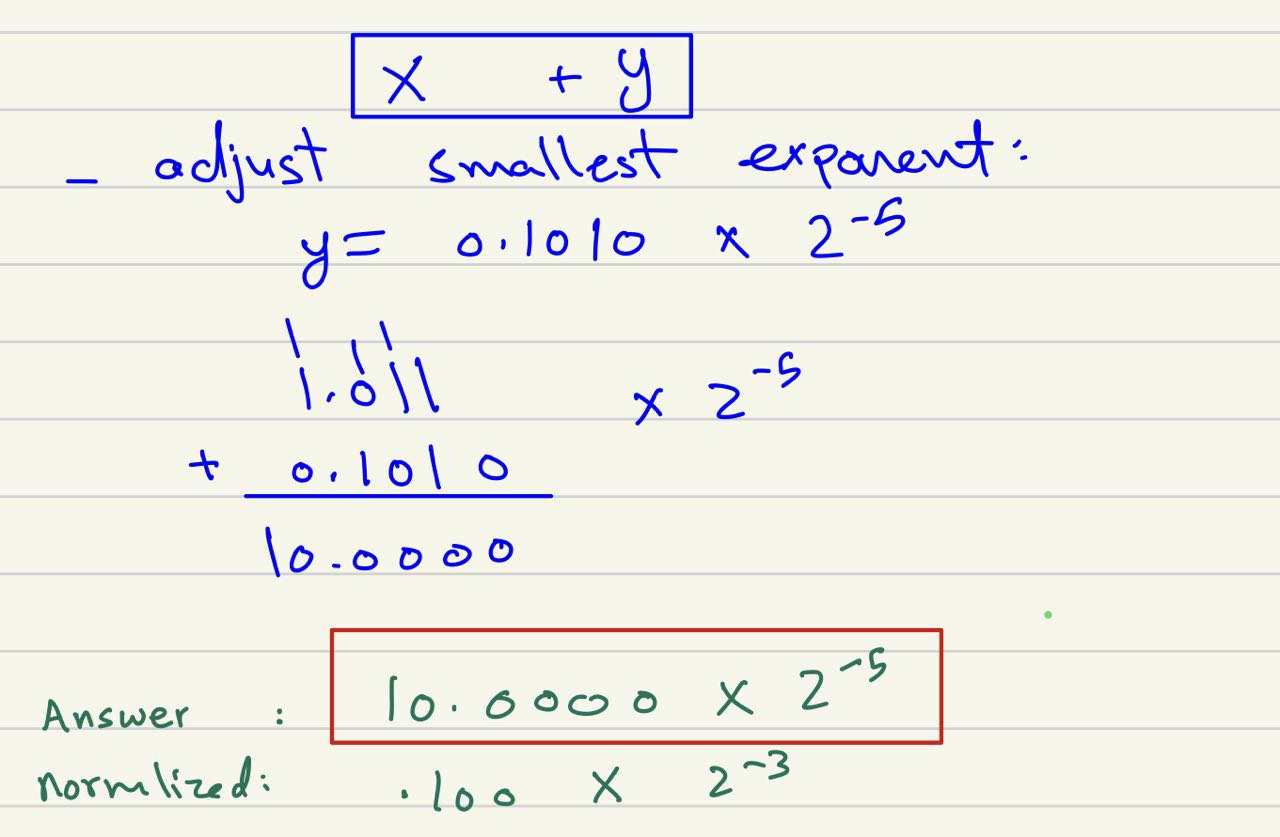 x + y
- adjust smallest exponent:
y = 0.1010 x 2^-5
1 1 1
1.011 x 2^-5
+ 0.1010
10.0000
Answer : 10.0000 x 2^-5
Normlized: .100 x 2^-3